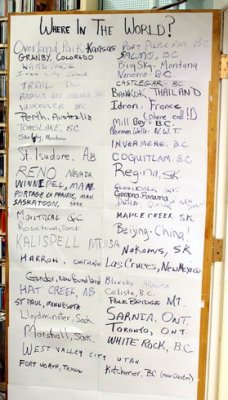 WHERE IN THE WORLD?
Overland Park Kansas
GRANBY, COLORADO
TRAIL BC
VANCOUVER BC
Perth, Australia
TOMSLAKE, B.C.
St. Isadore, AB
RENO NEVADA
WINNIPEG, MAN.
PORTAGE la PRAIRIE, MAN
SASKATOON, SASK
Montreal QC
Rosetown, Sask
KALISPELL MT USA
HARROW, ONTARIO
Gander, Newfoundland
HAT CREEK, AB
ST PAUL, MINNESOTA
Lloydminster, Sask.
Marshall, Sask.
WEST VALLEY CITY UTAH
FORT WORTH, TEXAS
PORT ALBERNI B.C.
SALMO, B.C.
Big Sky, Montana
CASTLEGAR BC
BANGKOK THAILAND
Idron, France
(phone call!)
Mill Bay, B.C.
Norman Wells N.W.T.
INVERMERE, BC
COQUITLAM, BC
Regina, SK
MAPLE CREEK SK
Beijing-China!
Nokomis, SK
Las Cruces, New Mexico
Bluesky Alberta
Celista, B.C.
POLEBRIDGE MT.
SARNIA, ONT.
TORONTO, ONT.
WHITE ROCK, B.C.
Kitchener, BC (near Creston)